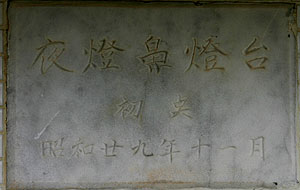 夜燈鼻燈台
初点
昭和廿九年十一月